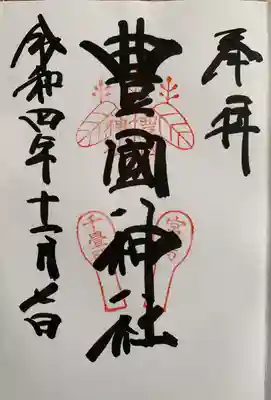 奉拝
豊國神社
千畳閣
令和四年十一月七日